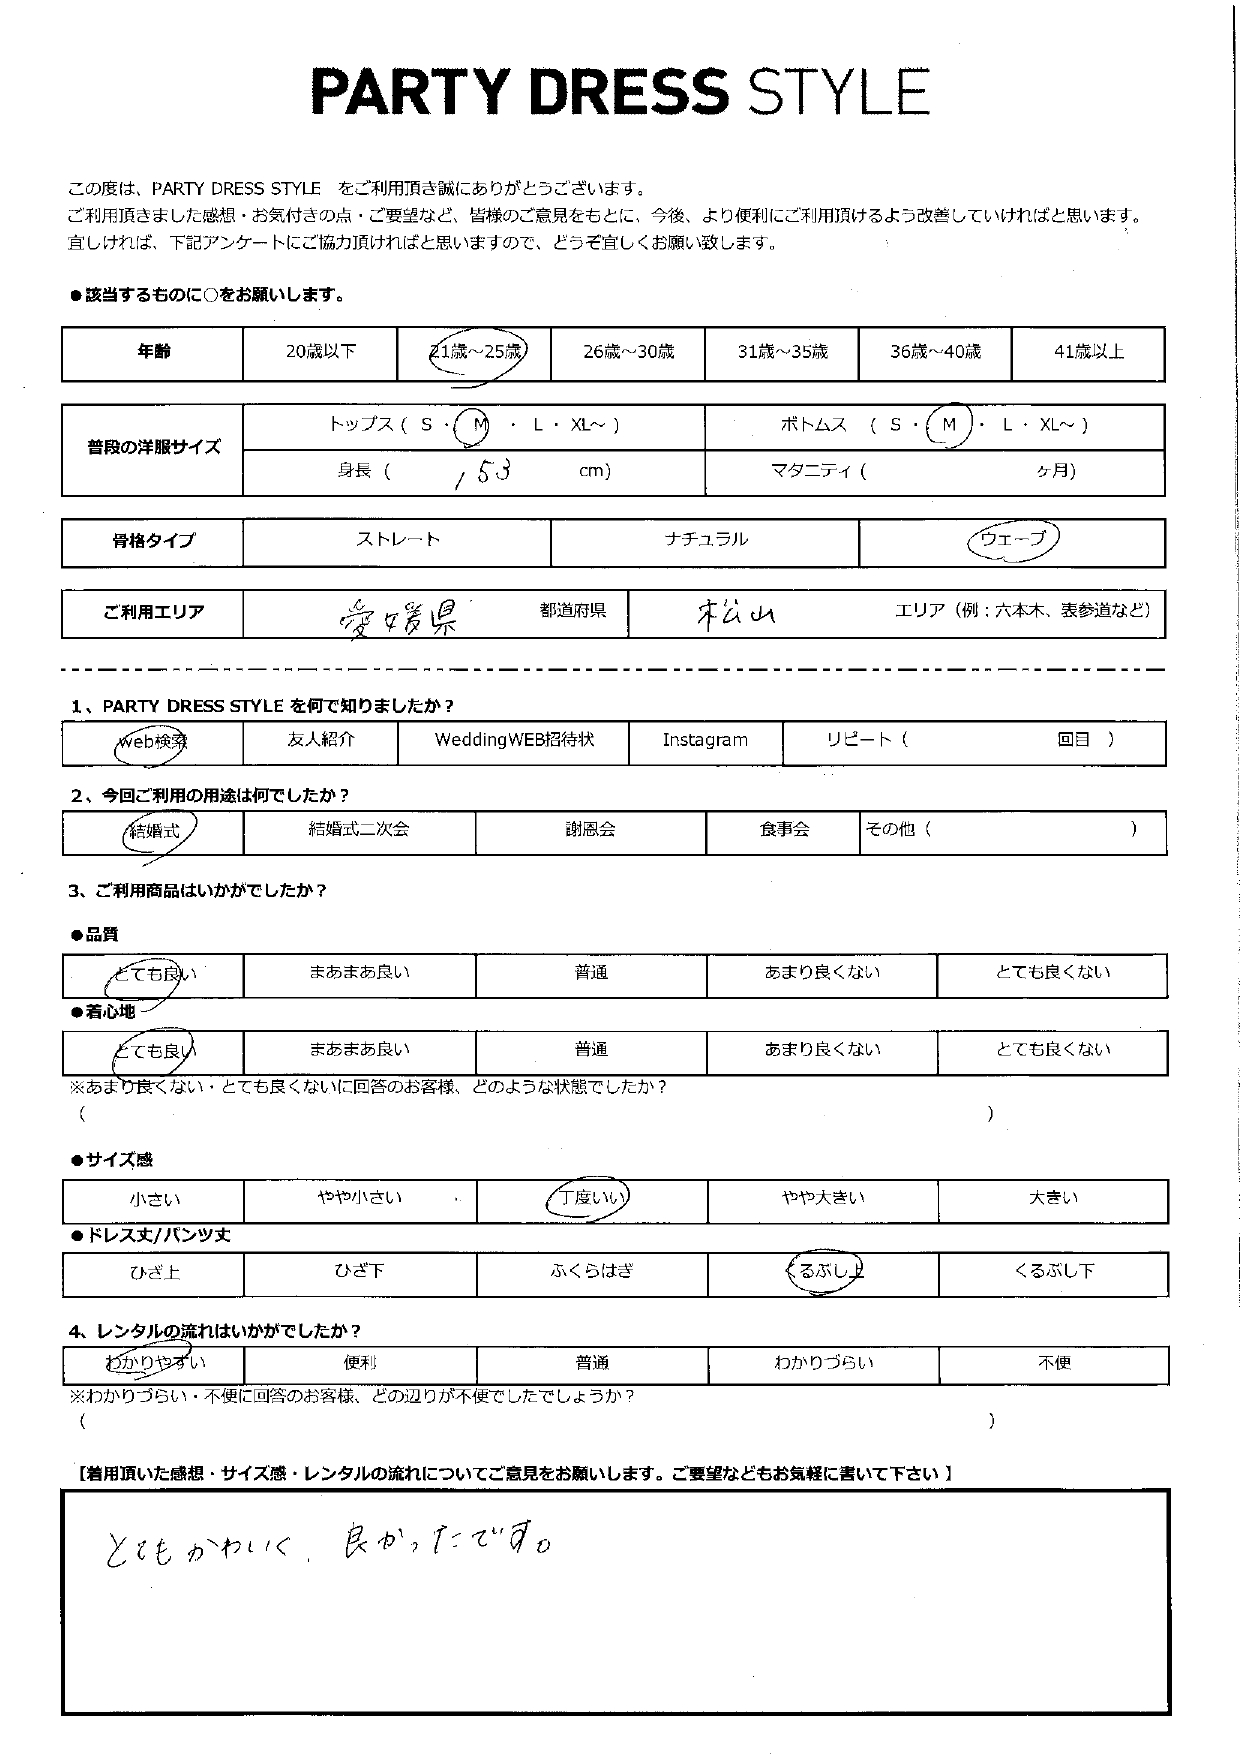 PARTY DRESS STYLE
この度は、PARTY DRESS STYLE　をご利用頂き誠にありがとうございます。
ご利用頂きました感想・お気付きの点・ご要望など、皆様のご意見をもとに、今後、より便利にご利用頂けるよう改善していければと思います。
宜しければ、下記アンケートにご協力頂ければと思いますので、どうぞ宜しくお願い致します。
●該当するものに○をお願いします。
年齢 20歳以下 21歳～25歳 26歳～30歳 31歳～35歳 36歳～40歳 41歳以上
普段の洋服サイズ
トップス ( S ・ M ・ L ・ XL～ ) ボトムス ( S ・ M ・ L ・ XL～ )
身長 ( 153 cm) マタニティ ( ヶ月)
骨格タイプ ストレート ナチュラル ウェーブ
ご利用エリア 愛媛県 都道府県 松山 エリア（例：六本木、表参道など）
1、PARTY DRESS STYLE を何で知りましたか？
web検索 友人紹介 WeddingWEB招待状 Instagram リピート ( 回目 )
2、今回ご利用の用途は何でしたか？
結婚式 結婚式二次会 謝恩会 食事会 その他 ( )
3、ご利用商品はいかがでしたか？
●品質
とても良い まあまあ良い 普通 あまり良くない とても良くない
●着心地
とても良い まあまあ良い 普通 あまり良くない とても良くない
※あまり良くない・とても良くないに回答のお客様、どのような状態でしたか？
( )
●サイズ感
小さい やや小さい 丁度いい やや大きい 大きい
●ドレス丈/パンツ丈
ひざ上 ひざ下 ふくらはぎ くるぶし上 くるぶし下
4、レンタルの流れはいかがでしたか？
わかりやすい 便利 普通 わかりづらい 不便
※わかりづらい・不便に回答のお客様、どの辺りが不便でしたでしょうか？
( )
【着用頂いた感想・サイズ感・レンタルの流れについてご意見をお願いします。ご要望などもお気軽に書いて下さい 】
とてもかわいく、良かったです。